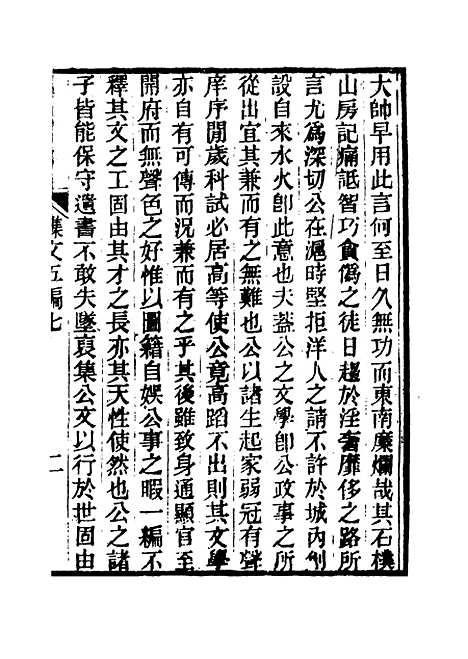 大帥早用此言何至日久無功而東南糜爛哉其石樸
山房記痛詆智巧貪僞之徒日趨於淫奢靡侈之路所
言尤爲深切公在滬時堅拒洋人之請不許於城内剏
設自來水火卽此意也夫葢公之文學卽公政事之所
從出宜其兼而有之無難也公以諸生起家弱冠有聲
庠序閒歲科試必居高等使公竟高蹈不出則其文學
亦自有可傳而況兼而有之乎其後雖致身通顯官至
開府而無聲色之好惟以圖籍自娛公事之暇一編不
釋其文之工固由其才之長亦其天性使然也公之諸
子皆能保守遺書不敢失墜裒集公文以行於世固由
雜文五編七
二